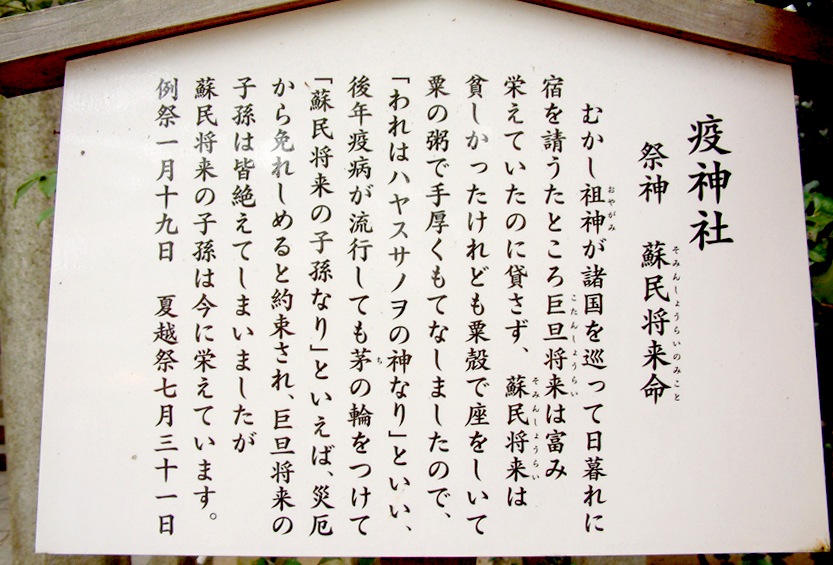 疫神社
祭神　蘇民将来命
そみんしょうらいのみこと
むかし祖神が諸国を巡って日暮れに
おやがみ
宿を請うたところ巨旦将来は富み
こたんしょうらい
栄えていたのに貸さず、蘇民将来は
そみんしょうらい
貧しかったけれども粟殻で座をしいて
粟の粥で手厚くもてなしましたので、
「われはハヤスサノヲの神なり」といい、
後年疫病が流行しても茅の輪をつけて
ち
「蘇民将来の子孫なり」といえば、災厄
から免れしめると約束され、巨旦将来の
子孫は皆絶えてしまいましたが
蘇民将来の子孫は今に栄えています。
例祭一月十九日　夏越祭七月三十一日